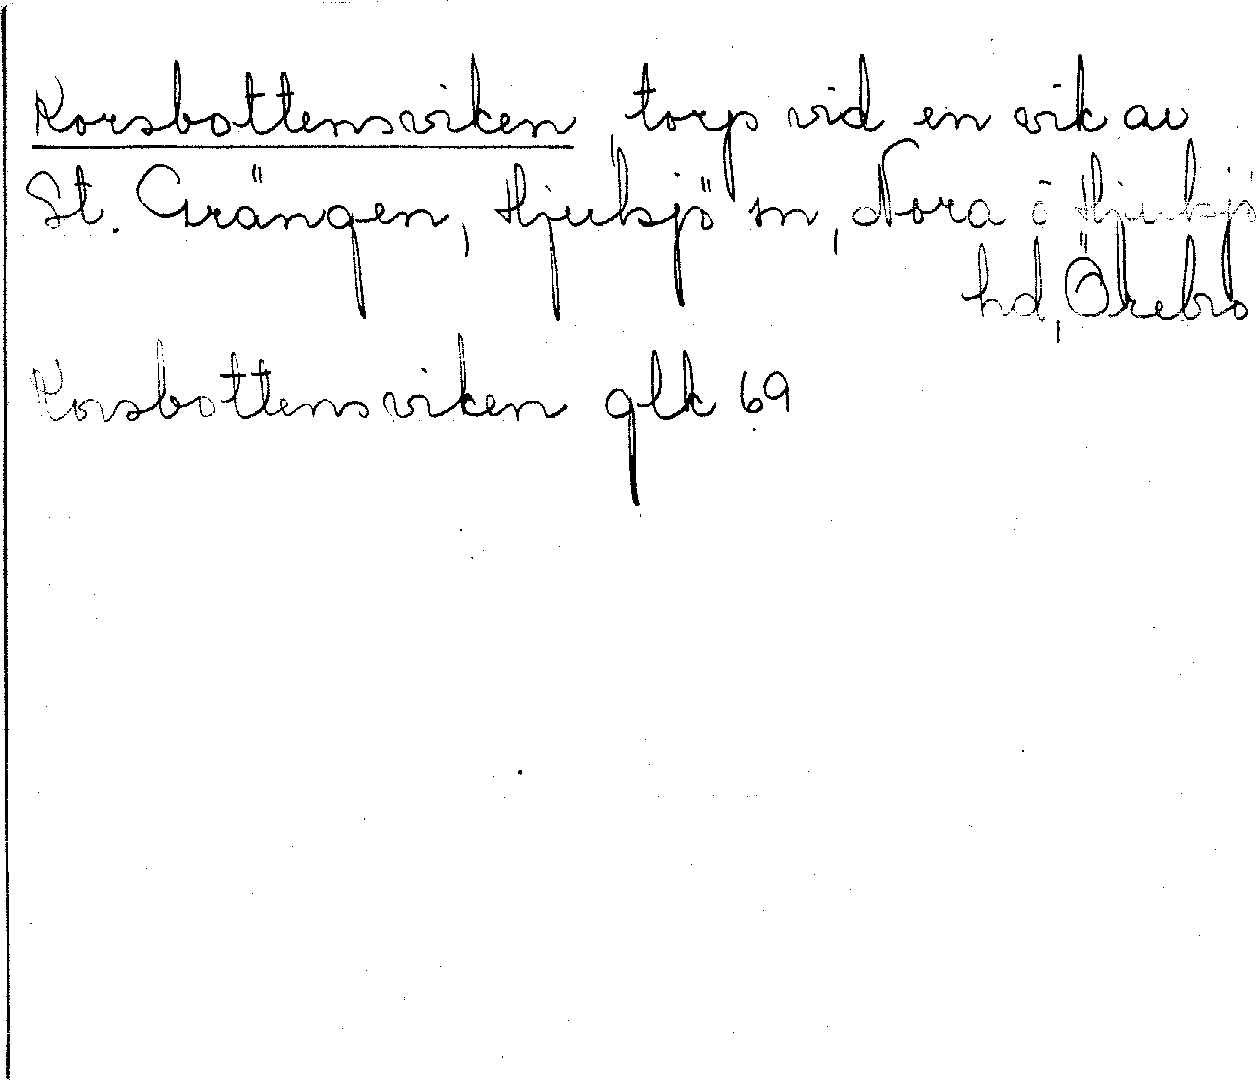 Korsbottensviken, torp vid en vik av
St. Grängen, Hjulsjö sn, Nora o Hjulsjö
hd, Örebro
Korsbottensviken glk 69